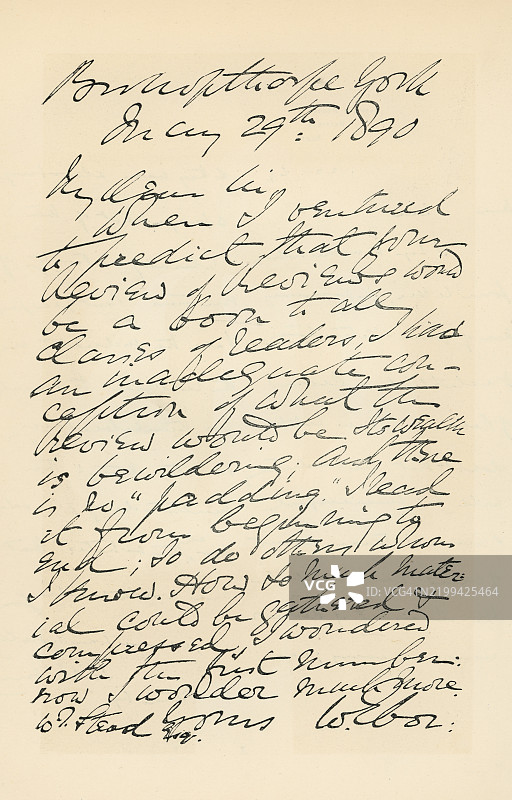 Bishopthorpe York
May 29th 1890
My dear Sir
When I ventured
to predict that your
Review of Reviews would
be a boon to all
classes of readers, I had
an inadequate con-
ception of what the
review would be. Its wealth
is bewildering; and there
is no "padding." I read
it from beginning to
end; so do others whom
I know. How so much mater-
ial could be gathered &
compressed, I wondered
with the first number:
now I wonder much more.
Yours W. Ebor:
W. T. Stead Esq.
VCG
VCG.COM
ID: VCG41N2199425464